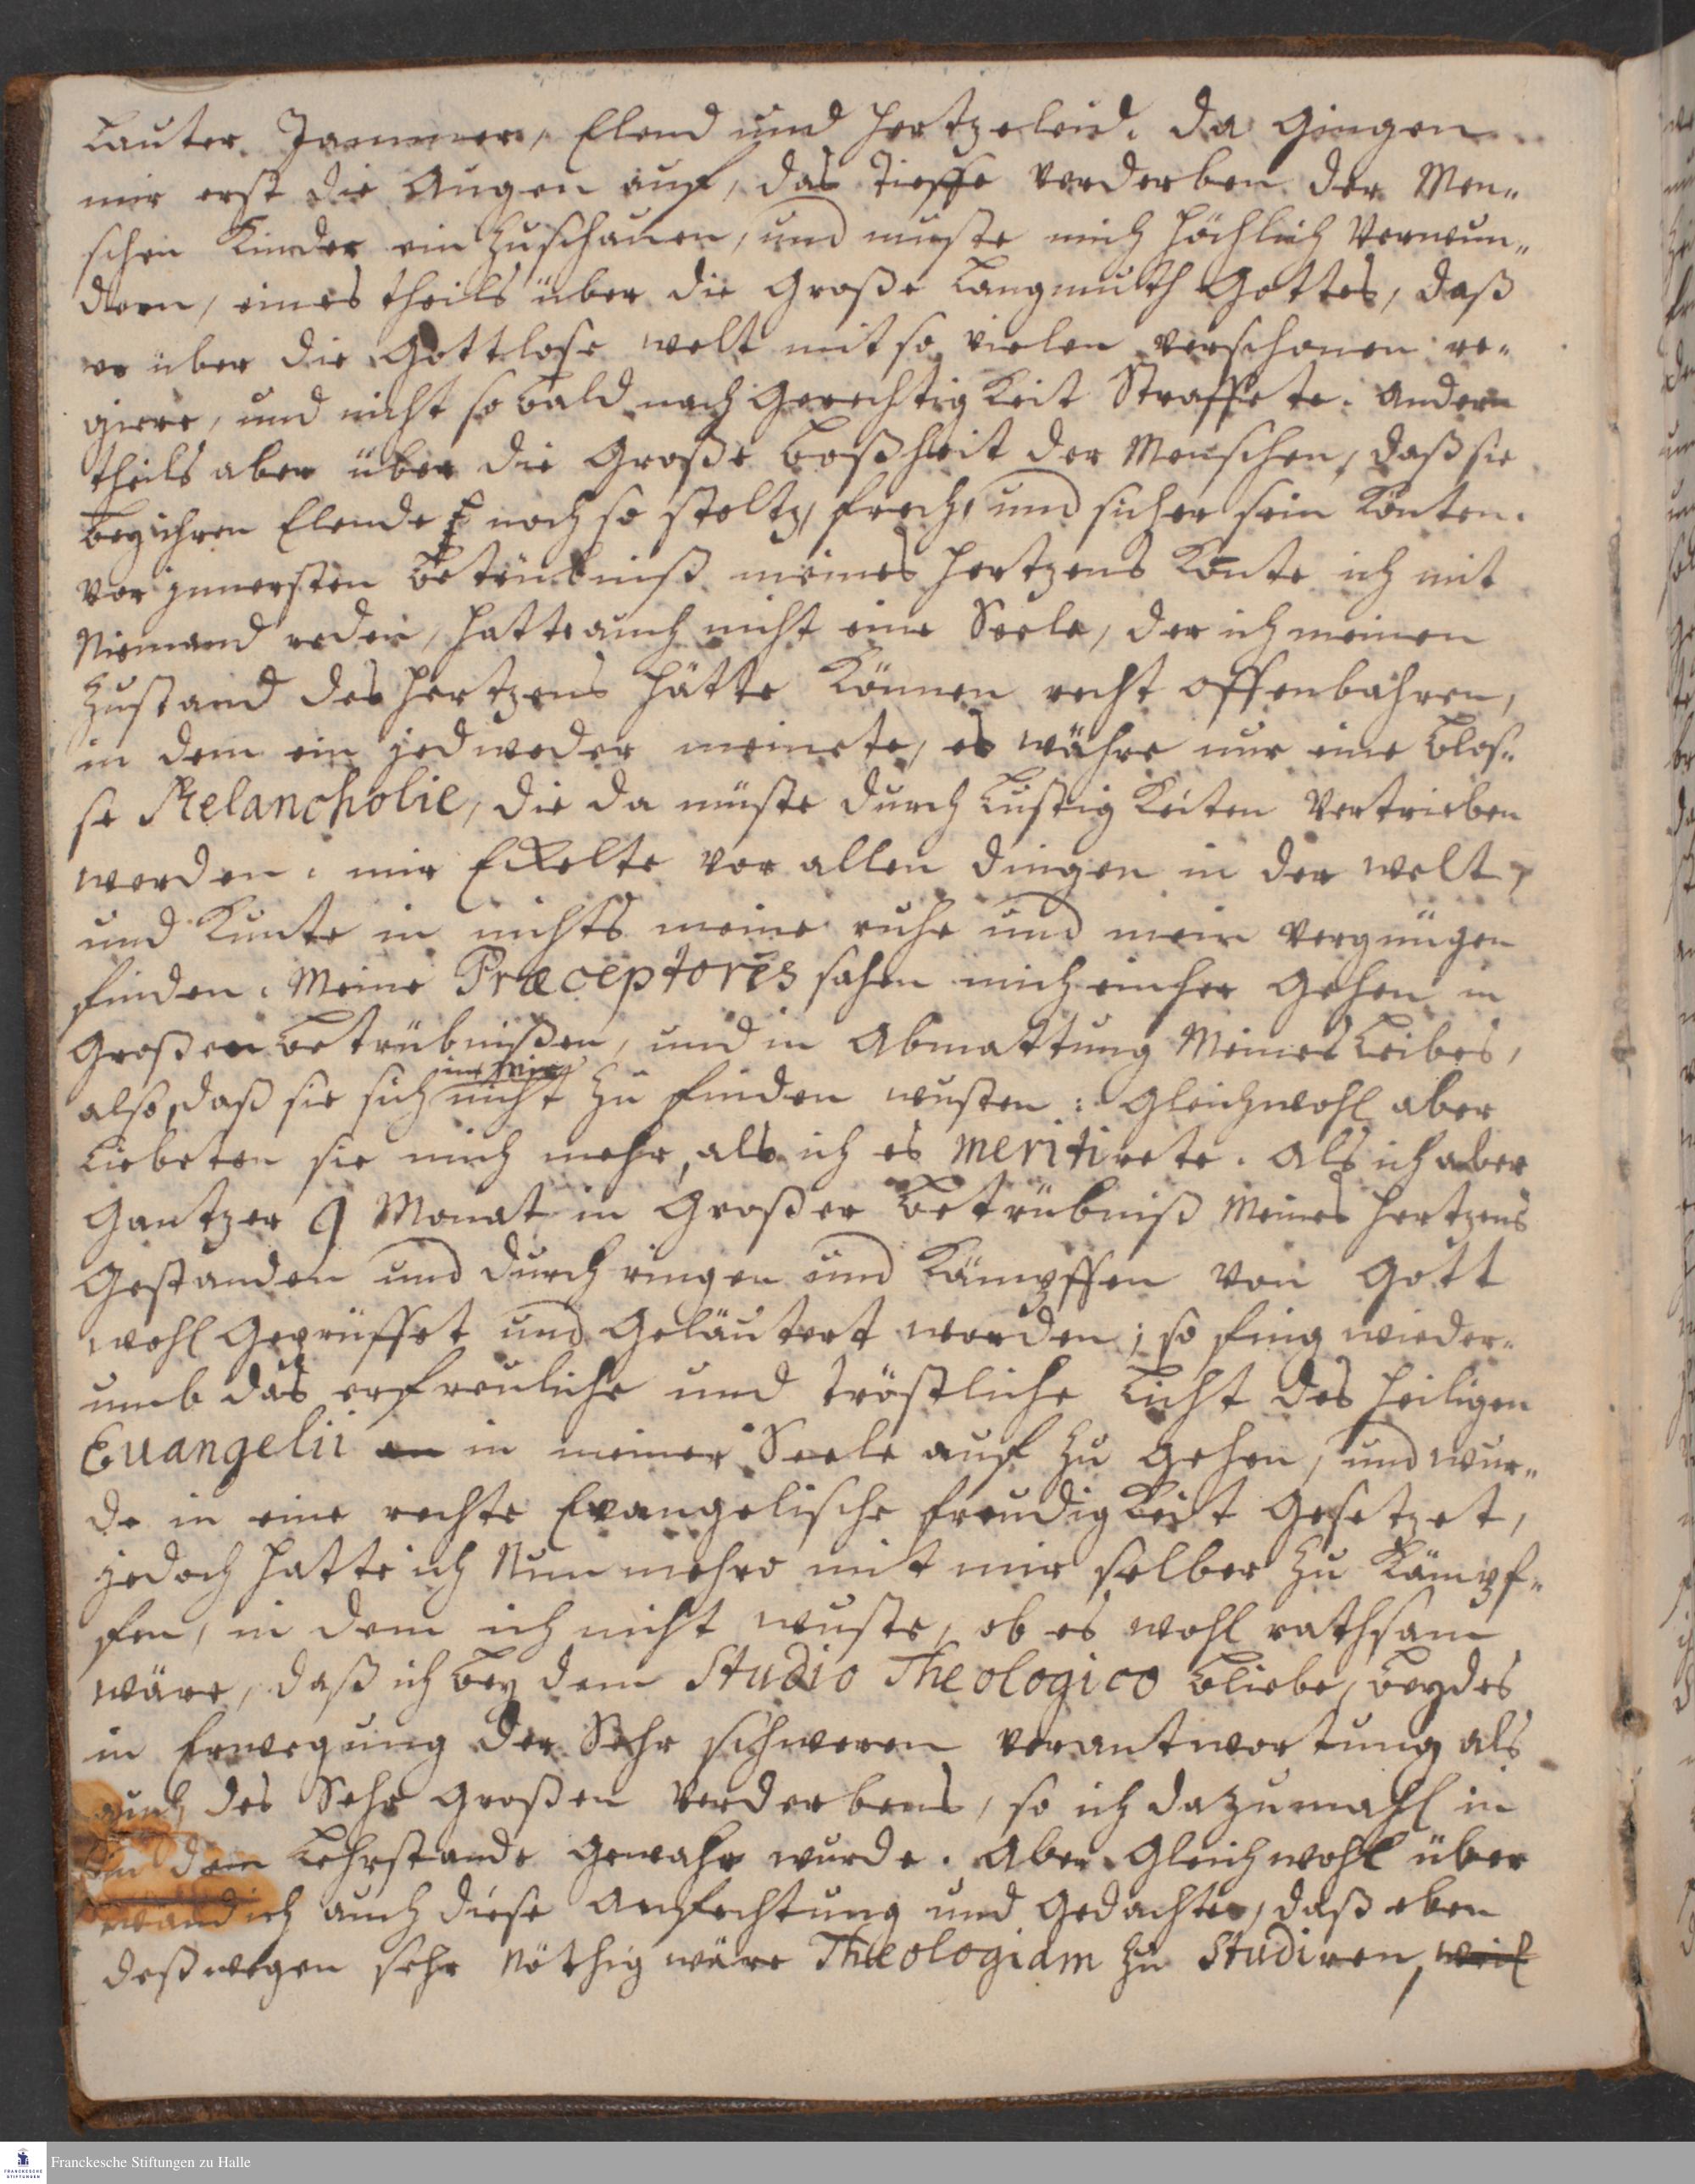 Lauter Jammer, Elend und Hertzeleid. Da gingen
mir erst die Augen auf, das tieffe verderben der Men„
schen Kinder ein zuschauen, und muste mich höchlich verwun„
dern, eines theils über die Große Langmuth Gottes, daß
er über die Gottlose welt mit so vielen verschonen re„
giere, und nicht so bald nach Gerechtigkeit Straffete. andern
theils aber über die Große Boßheit der Menschen, daß sie
bey ihren Elende noch so stoltz, frech, und sicher sein Könten.
vor innersten Betrübniß meines Hertzens Konte ich mit
Niemand reden, hatte auch nicht eine Seele, der ich meinen
Zustand des Hertzens hätte Können recht offenbahren,
in dem ein jedweder meinete, es währe nur eine blos„
se Melancholie, die da müste durch Lustigkeiten vertrieben
werden. mir Ekelte vor allen dingen in der welt,
und Kunte in nichts meine ruhe und mein vergnügen
finden. Meine Præceptores sahen mich einher gehen in
Großen Betrübnißen, und in Abmattung Meines Leibes,
also, daß sie sich in mir nicht zu finden wusten: Gleichwohl aber
Liebeten sie mich mehr, als ich es meritirete. Als ich aber
Gantzer 9 Monat in Großer Betrübniß Meines Hertzens
Gestanden und durch ringen und Kämpffen von Gott
wohl Geprüffet und Geläutert worden; so fing wieder„
umb das erfreuliche und tröstliche Licht des Heiligen
Evangelii an in meiner Seele auf zu gehen, und wur„
de in eine rechte Evangelische freudigkeit Gesetzet,
jedoch hatte ich Nunmehro mit mir selber zu Kämpf„
fen, in dem ich nicht wuste, ob es wohl rathsam
wäre, daß ich bey dem Studio Theologico bliebe, beydes
in Erwegung der Sehr schweren verantwortung als
auch des Sehr Großen verderbens, so ich dazumahl in
dem Lehrstande gewahr wurde. Aber Gleichwohl über
wand ich auch diese Anfechtung und Gedachte, daß eben
deßwegen sehr Nöthig wäre Theologiam zu Studiren, weil
Franckesche Stiftungen zu Halle
FRANCKESCHE
STIFTUNGEN